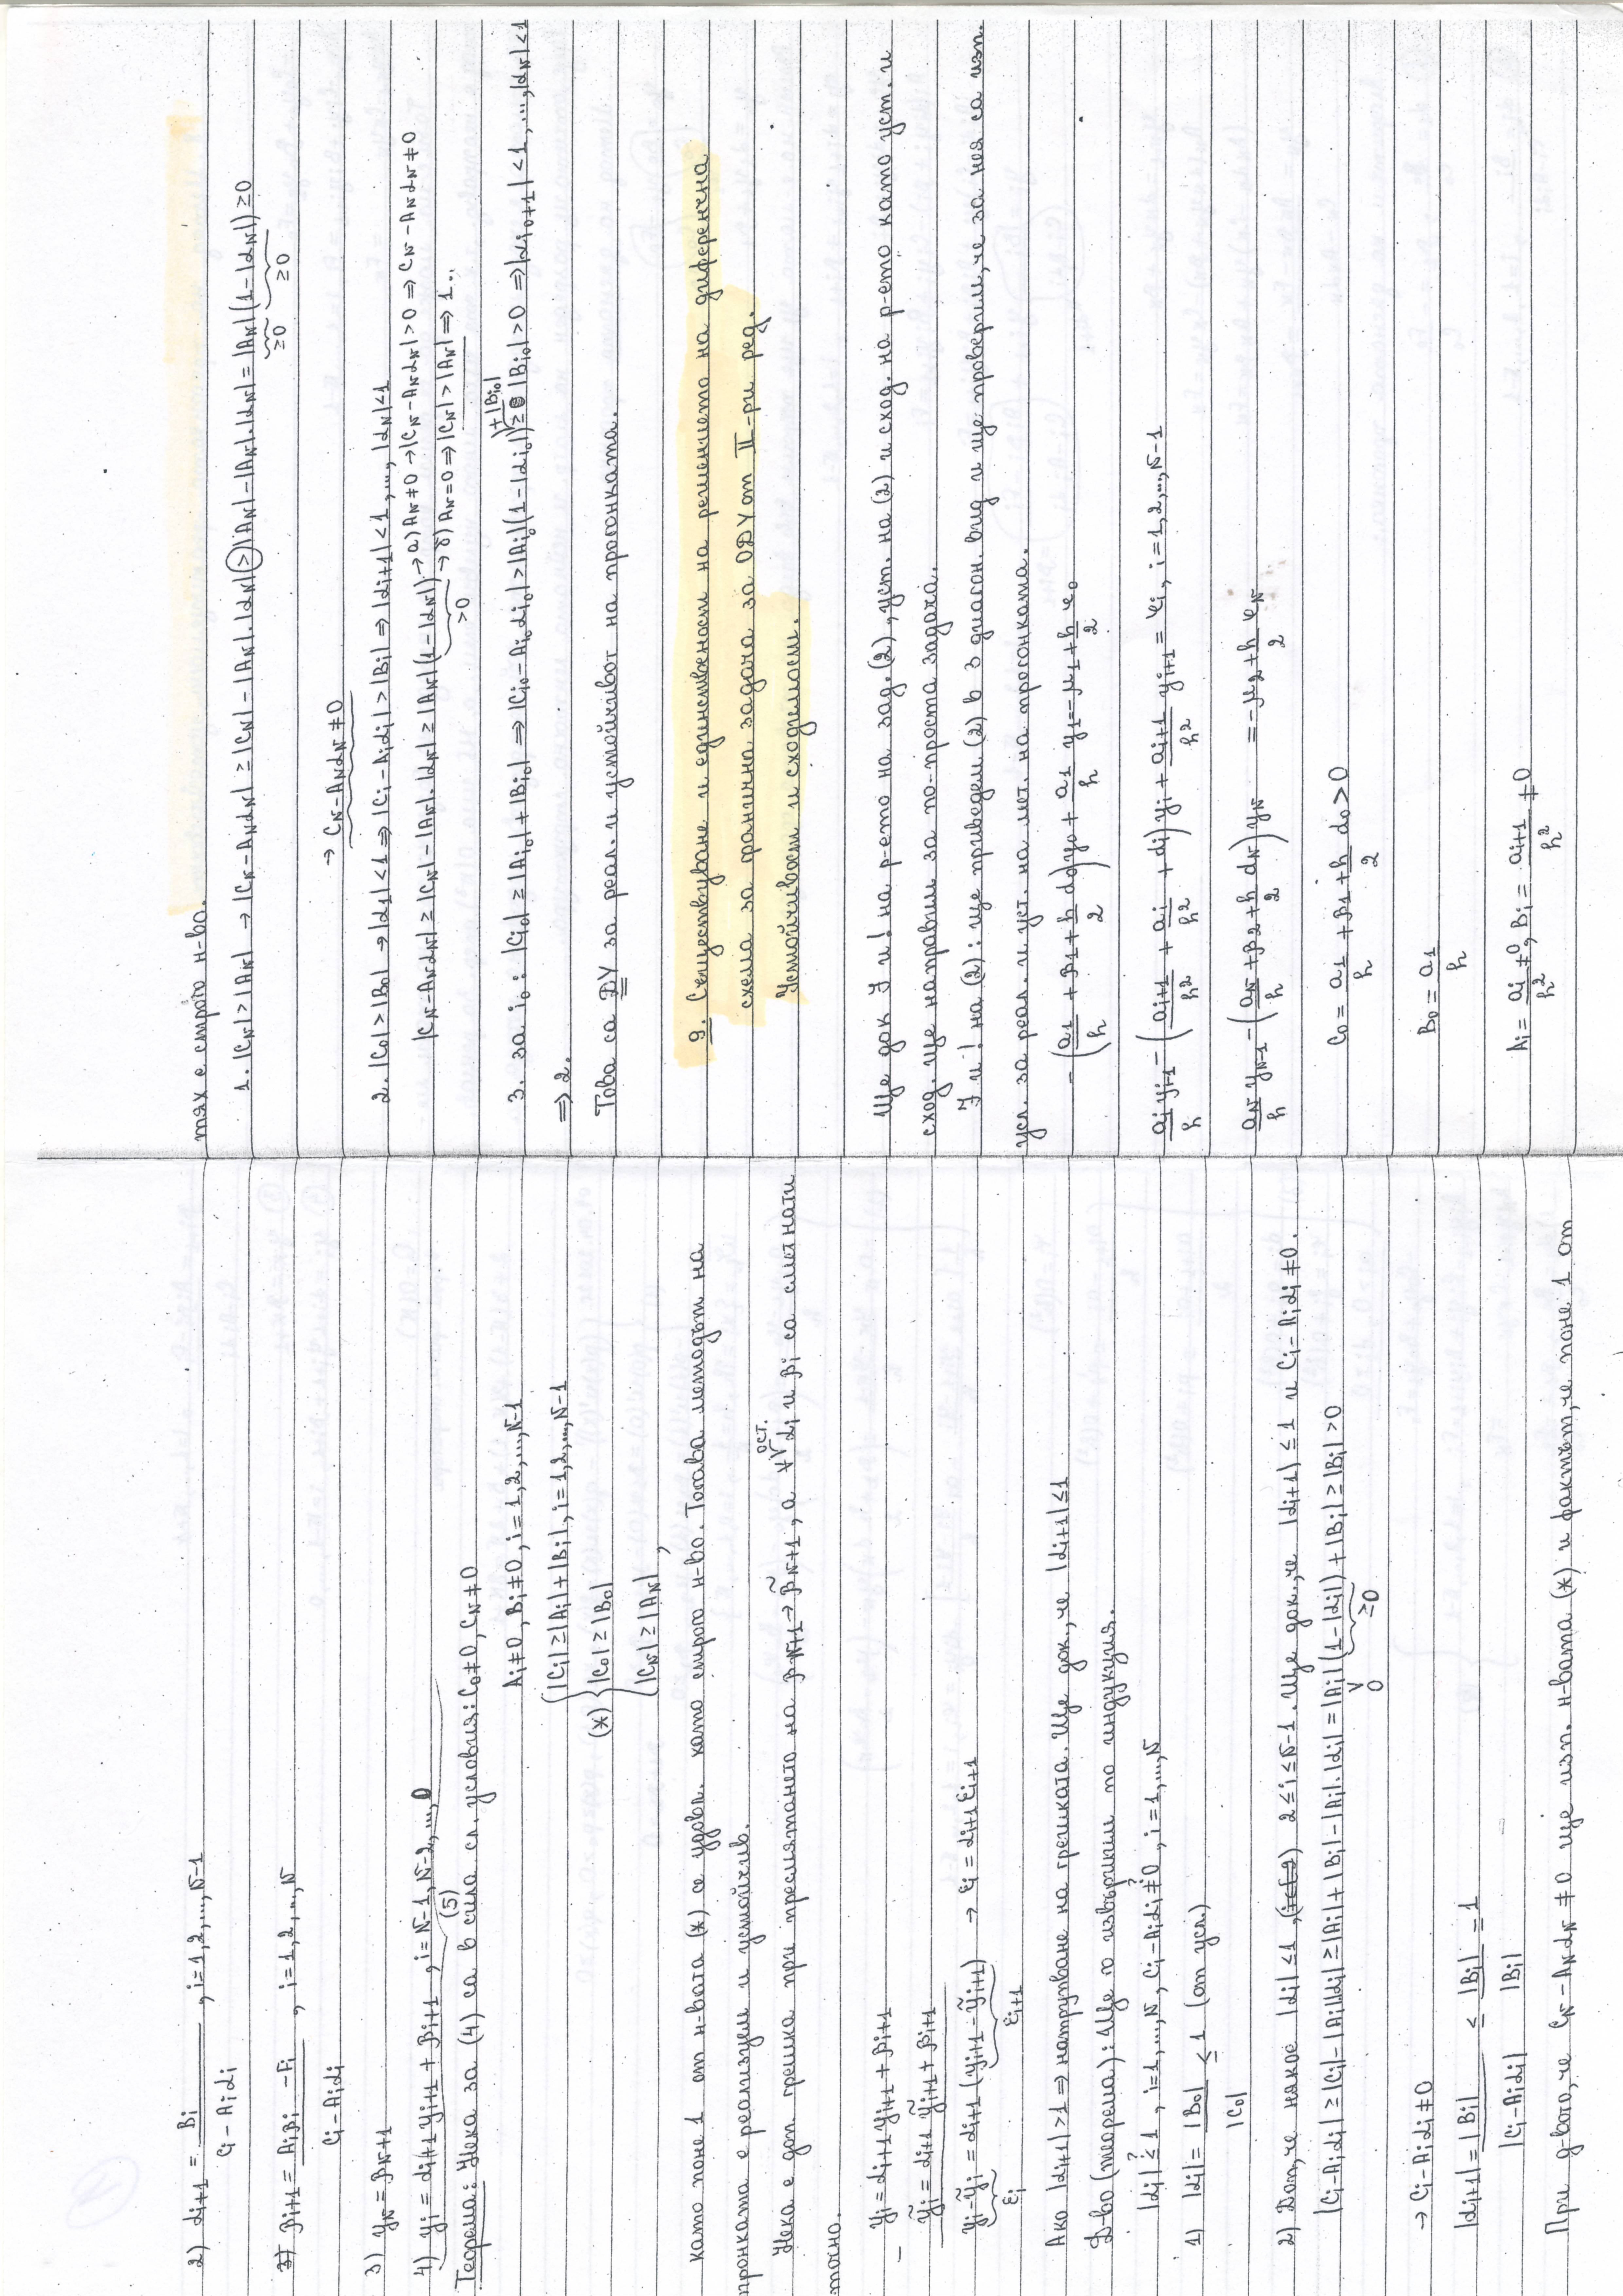 2) αi+1 = Bi / (Ci - Aiαi), i=1,2,...,N-1
3) βi+1 = (Aiβi - Fi) / (Ci - Aiαi), i=1,2,...,N
3) yN = βN+1
4) yi = αi+1 yi+1 + βi+1, i=N-1,N-2,...,0
(5)
Теорема: Нека за (4) са в сила сл. условия: C0≠0, CN≠0
Ai≠0, Bi≠0, i=1,2,...,N-1
(*) { |Ci| ≥ |Ai|+|Bi|, i=1,2,...,N-1
|C0| ≥ |B0|
|CN| ≥ |AN|,
като поне 1 от н-вата (*) се удовл. като строго н-во. Тогава методът на
прогонката е реализуем и устойчив.
Нека е доп. грешка при пресмятането на βN+1 → β̃N+1, а ∀ ост. αi и βi са сметнати
точно.
yi = αi+1 yi+1 + βi+1
- ỹi = αi+1 ỹi+1 + βi+1
yi - ỹi = αi+1 (yi+1 - ỹi+1) → εi = αi+1 εi+1
εi εi+1
Ако |αi+1|>1 ⇒ натрупване на грешката. Ще док., че |αi+1| ≤ 1
Д-во (теорема): Ще го извършим по индукция.
|αi| ≤? 1, i=1,...,N, Ci - Aiαi ≠? 0, i=1,...,N
1) |α1| = |B0| / |C0| ≤ 1 (от усл.)
2) Доп., че някое |αi| ≤ 1, 2≤i≤N-1. Ще док., че |αi+1| ≤ 1 и Ci - Aiαi ≠ 0.
|Ci - Aiαi| ≥ |Ci| - |Ai||αi| ≥ |Ai| + |Bi| - |Ai|.|αi| = |Ai|(1-|αi|) + |Bi| ≥ |Bi| > 0
∨ 0 ≥0
→ Ci - Aiαi ≠ 0
|αi+1| = |Bi| / |Ci - Aiαi| ≤ |Bi| / |Bi| = 1
При д-вото, че CN - ANαN ≠ 0 ще изп. н-вата (*) и фактът, че поне 1 от
тях е строго н-во.
1. |CN| > |AN| → |CN - ANαN| ≥ |CN| - |AN|.|αN| > |AN| - |AN|.|αN| = |AN|(1-|αN|) ≥ 0
≥0 ≥0
→ CN - ANαN ≠ 0
2. |C0| > |B0| → |α1| < 1 ⇒ |Ci - Aiαi| > |Bi| ⇒ |αi+1| < 1, ..., |αN| < 1
|CN - ANαN| ≥ |CN| - |AN|.|αN| ≥ |AN|(1-|αN|) → а) AN≠0 → |CN - ANαN| > 0 ⇒ CN - ANαN ≠ 0
>0 → б) AN=0 ⇒ |CN| > |AN| ⇒ 1.
3. за i0: |Ci0| > |Ai0| + |Bi0| ⇒ |Ci0 - Ai0αi0| > |Ai0|(1-|αi0|) +|Bi0| ≥ |Bi0| > 0 ⇒ |αi0+1| < 1, ..., |αN| < 1
⇒ 2.
Това са ДУ за реал. и устойчивот на прогонката.
9. Съществуване и единственост на решението на диференчна
схема за гранична задача за ОДУ от II-ри ред.
Устойчивост и сходимост.
Ще док ∃ и ! на р-ето на зад. (2), уст. на (2) и сход. на р-ето като уст. и
сход. ще направим за по-проста задача.
∃ и ! на (2): ще приведем (2) в 3 диагон. вид и ще проверим, че за нея са изп.
усл. за реал. и уст. на мет. на прогонката.
-(a1/h + β1 + h/2 d0) y0 + a1/h y1 = -μ1 + h/2 φ0
ai/h yi-1 - (ai+1/h² + ai/h² + di) yi + ai+1/h² yi+1 = φi, i=1,2,...,N-1
aN/h yN-1 - (aN/h + β2 + h/2 dN) yN = -μ2 + h/2 φN
C0 = a1/h + β1 + h/2 d0 > 0
B0 = a1/h
Ai = ai/h² ≠ 0, Bi = ai+1/h² ≠ 0